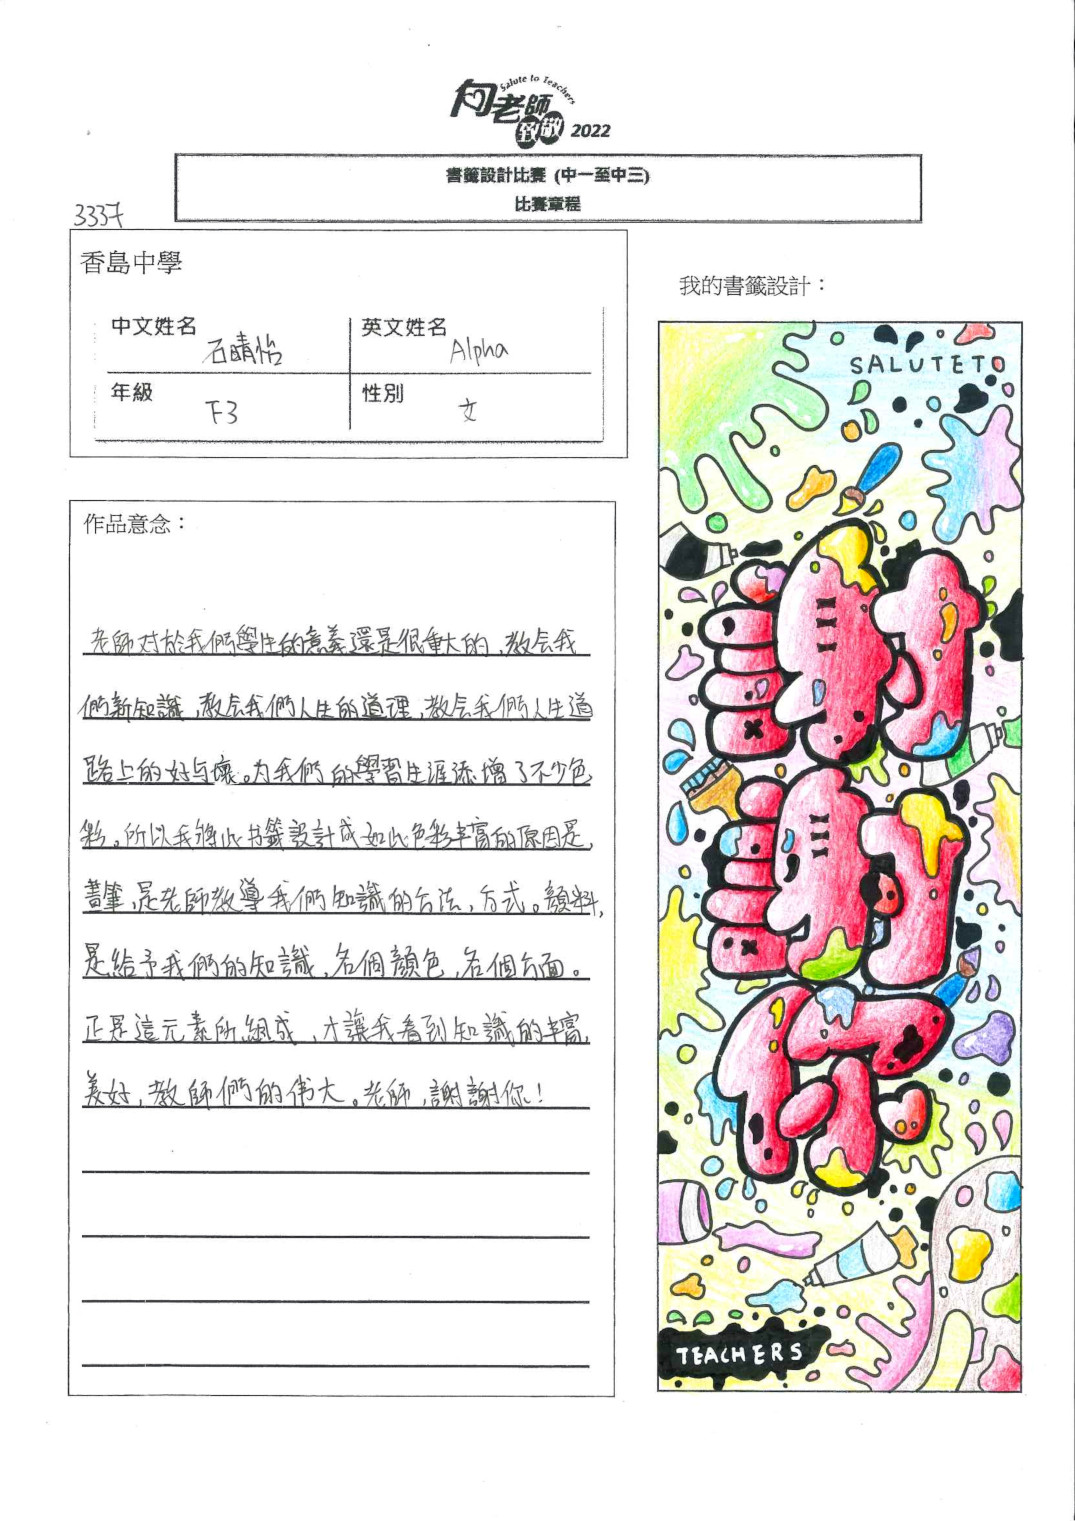 向老師
Salute to Teachers
致敬 2022
書籤設計比賽 (中一至中三)
比賽章程
3337
香島中學
中文姓名 石晴怡
英文姓名 Alpha
年級 F3
性別 女
我的書籤設計：
作品意念：
老師对於我們學生的意義還是很重大的，教会我
們新知識，教会我們人生的道理，教会我們人生道
路上的好与壞。为我們的學習生涯添增了不少色
彩。所以我將此书籤設計成如此色彩丰富的原因是，
畫筆，是老師教導我們知識的方法，方式。顏料，
是給予我們的知識，各個顏色，各個方面。
正是這元素所組成，才讓我看到知識的丰富，
美好，教師們的偉大。老師，謝謝你！
SALUTE TO
謝謝你
TEACHERS